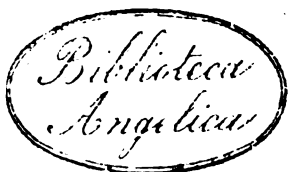 Biblioteca
Angelica